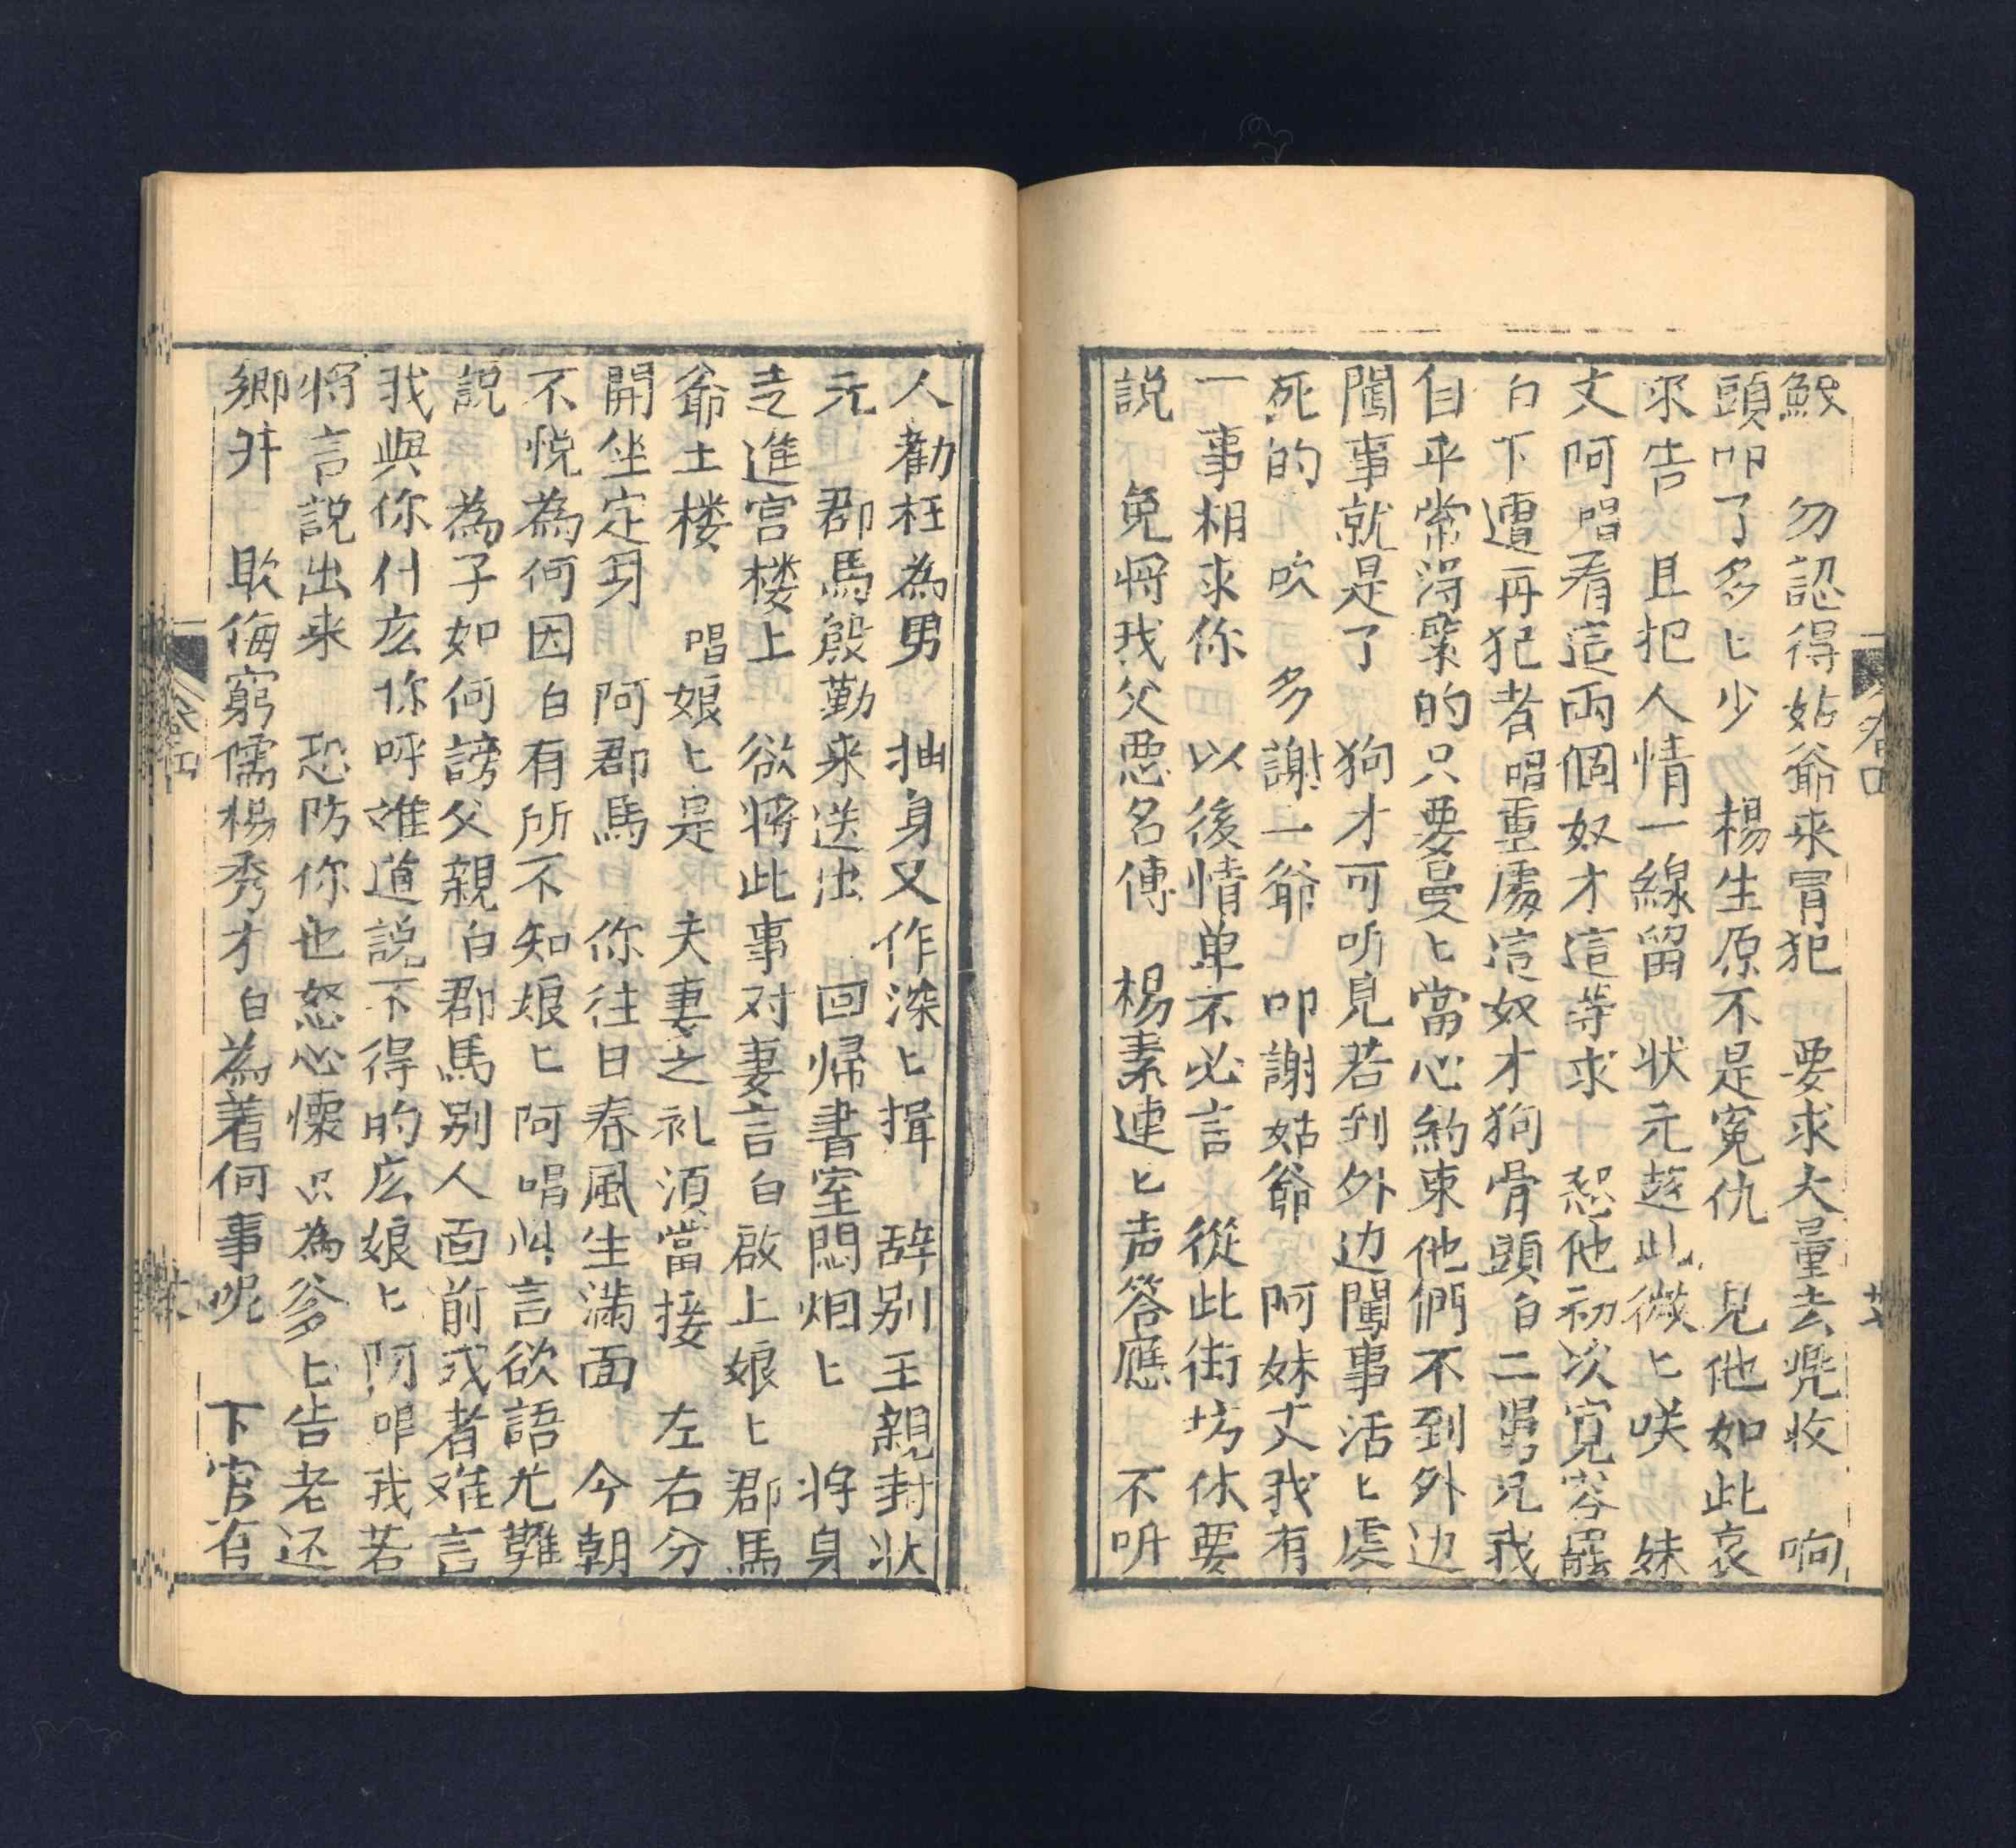 勿認得姑爺来冐犯　要求大量去兠收　响
頭叩了多〻少　楊生原不是寃仇　見他如此哀
求告　且犯人情一線留　状元趂此微〻咲　妹
丈阿唱看這兩個奴才這等求　恕他初次寛容罷
白下遭再犯者唱重處這奴才狗骨頭白二舅兄我
自平常得緊的只要曼〻當心約束他們不到外边
闖事就是了　狗才可听見若到外边闖事活〻處
死的　吹　多謝二爺〻　叩謝姑爺　阿妹丈我有
一事相求你　以後情单不必言　從此街坊休要
説　免将我父惡名傳　楊素連〻声答應　不听
人勸枉為男　抽身又作深〻揖　辞别王親封状
元　郡馬慇勤来送出　回歸書室悶烟〻　将身
走進宫楼上　欲将此事对妻言白啟上娘〻郡馬
爺士楼　唱娘〻是　夫妻之礼須當接　左右分
開坐定身　阿郡馬　你往日春風生满面　今朝
不悦為何因白有所不知娘〻阿唱言欲語尤難
説　為子如何謗父親白郡馬别人面前或者难言
我與你什庅你呼誰道説不得的庅娘〻阿唱我若
将言説出来　恐防你也怒心懷只為爹〻告老还
鄉井　欺侮窮儒楊秀才白為着何事呢　下官有
卷四
卷四